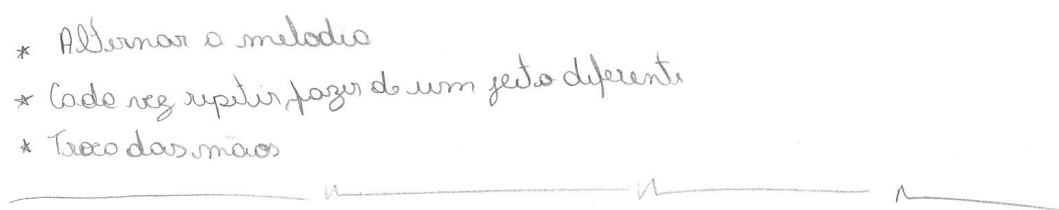 * Alternar a melodia
* Cada vez repetir, fazer de um jeito diferente
* Troca das mãos